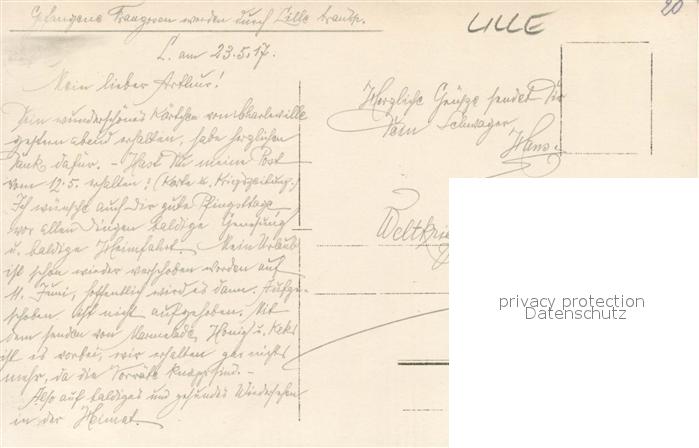 Gefangene Franzosen werden durch Lille transp.
LILLE
20
L. am 23.5.17.
Mein lieber Arthur!
Dein wunderschönes Kärtchen von Charleville
gestern abend erhalten, habe herzlichen
Dank dafür. - Hast Du meine Post
vom 12.5. erhalten? (Karte u. Kriegszeitung.)
Ich wünsche auch dir gute Pfingsttage
vor allen Dingen baldige Genesung
u. baldige Heimfahrt. Mein Urlaub
ist schon wieder verschoben worden auf
11. Juni, hoffentlich wird es dann. Aufge-
schoben ist nicht aufgehoben. Mit
dem senden von Marmelade, Honig u. Keks
ist es vorbei, wir erhalten gar nichts
mehr, da die Vorräte knapp sind. -
Also auf baldiges und gesundes Wiedersehen
in der Heimat.
Herzliche Grüße sendet Dir
Dein Schwager
Hans.
Weltkrie
privacy protection
Datenschutz